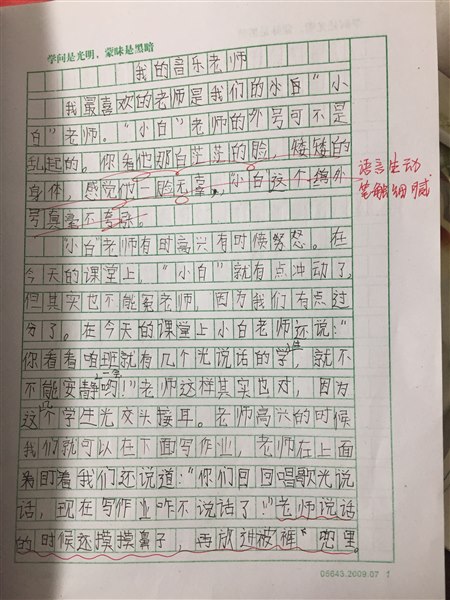 学问是光明，蒙昧是黑暗
我的音乐老师
我最喜欢的老师是我们的小白"小
白"老师。"小白"老师的外号可不是
乱起的。你看他那白茫茫的脸，矮矮的
身体，感觉他一脸无毫，"小白这个绰外
号真毫不夸张。
语言生动
笔触细腻
"小白"老师有时高兴有时候努怒。在
今天的课堂上，"小白"就有点冲动了，
但其实也不能冤老师，因为我们有点过
分了。在今天的课堂上小白老师还说："
你看看咱班就有几个光说话的学生，就不
不能安静一点吗!"老师这样其实也对，因为
这学生光交头接耳。老师高兴的时候
我们就可以在下面写作业，老师在上面
看盯着我们还说道："你们回回唱歌光说
话，现在写作业咋不说话了!"老师说话
的时候还摸摸鼻子，再放到被裤"兜里
05643.2009.07 1